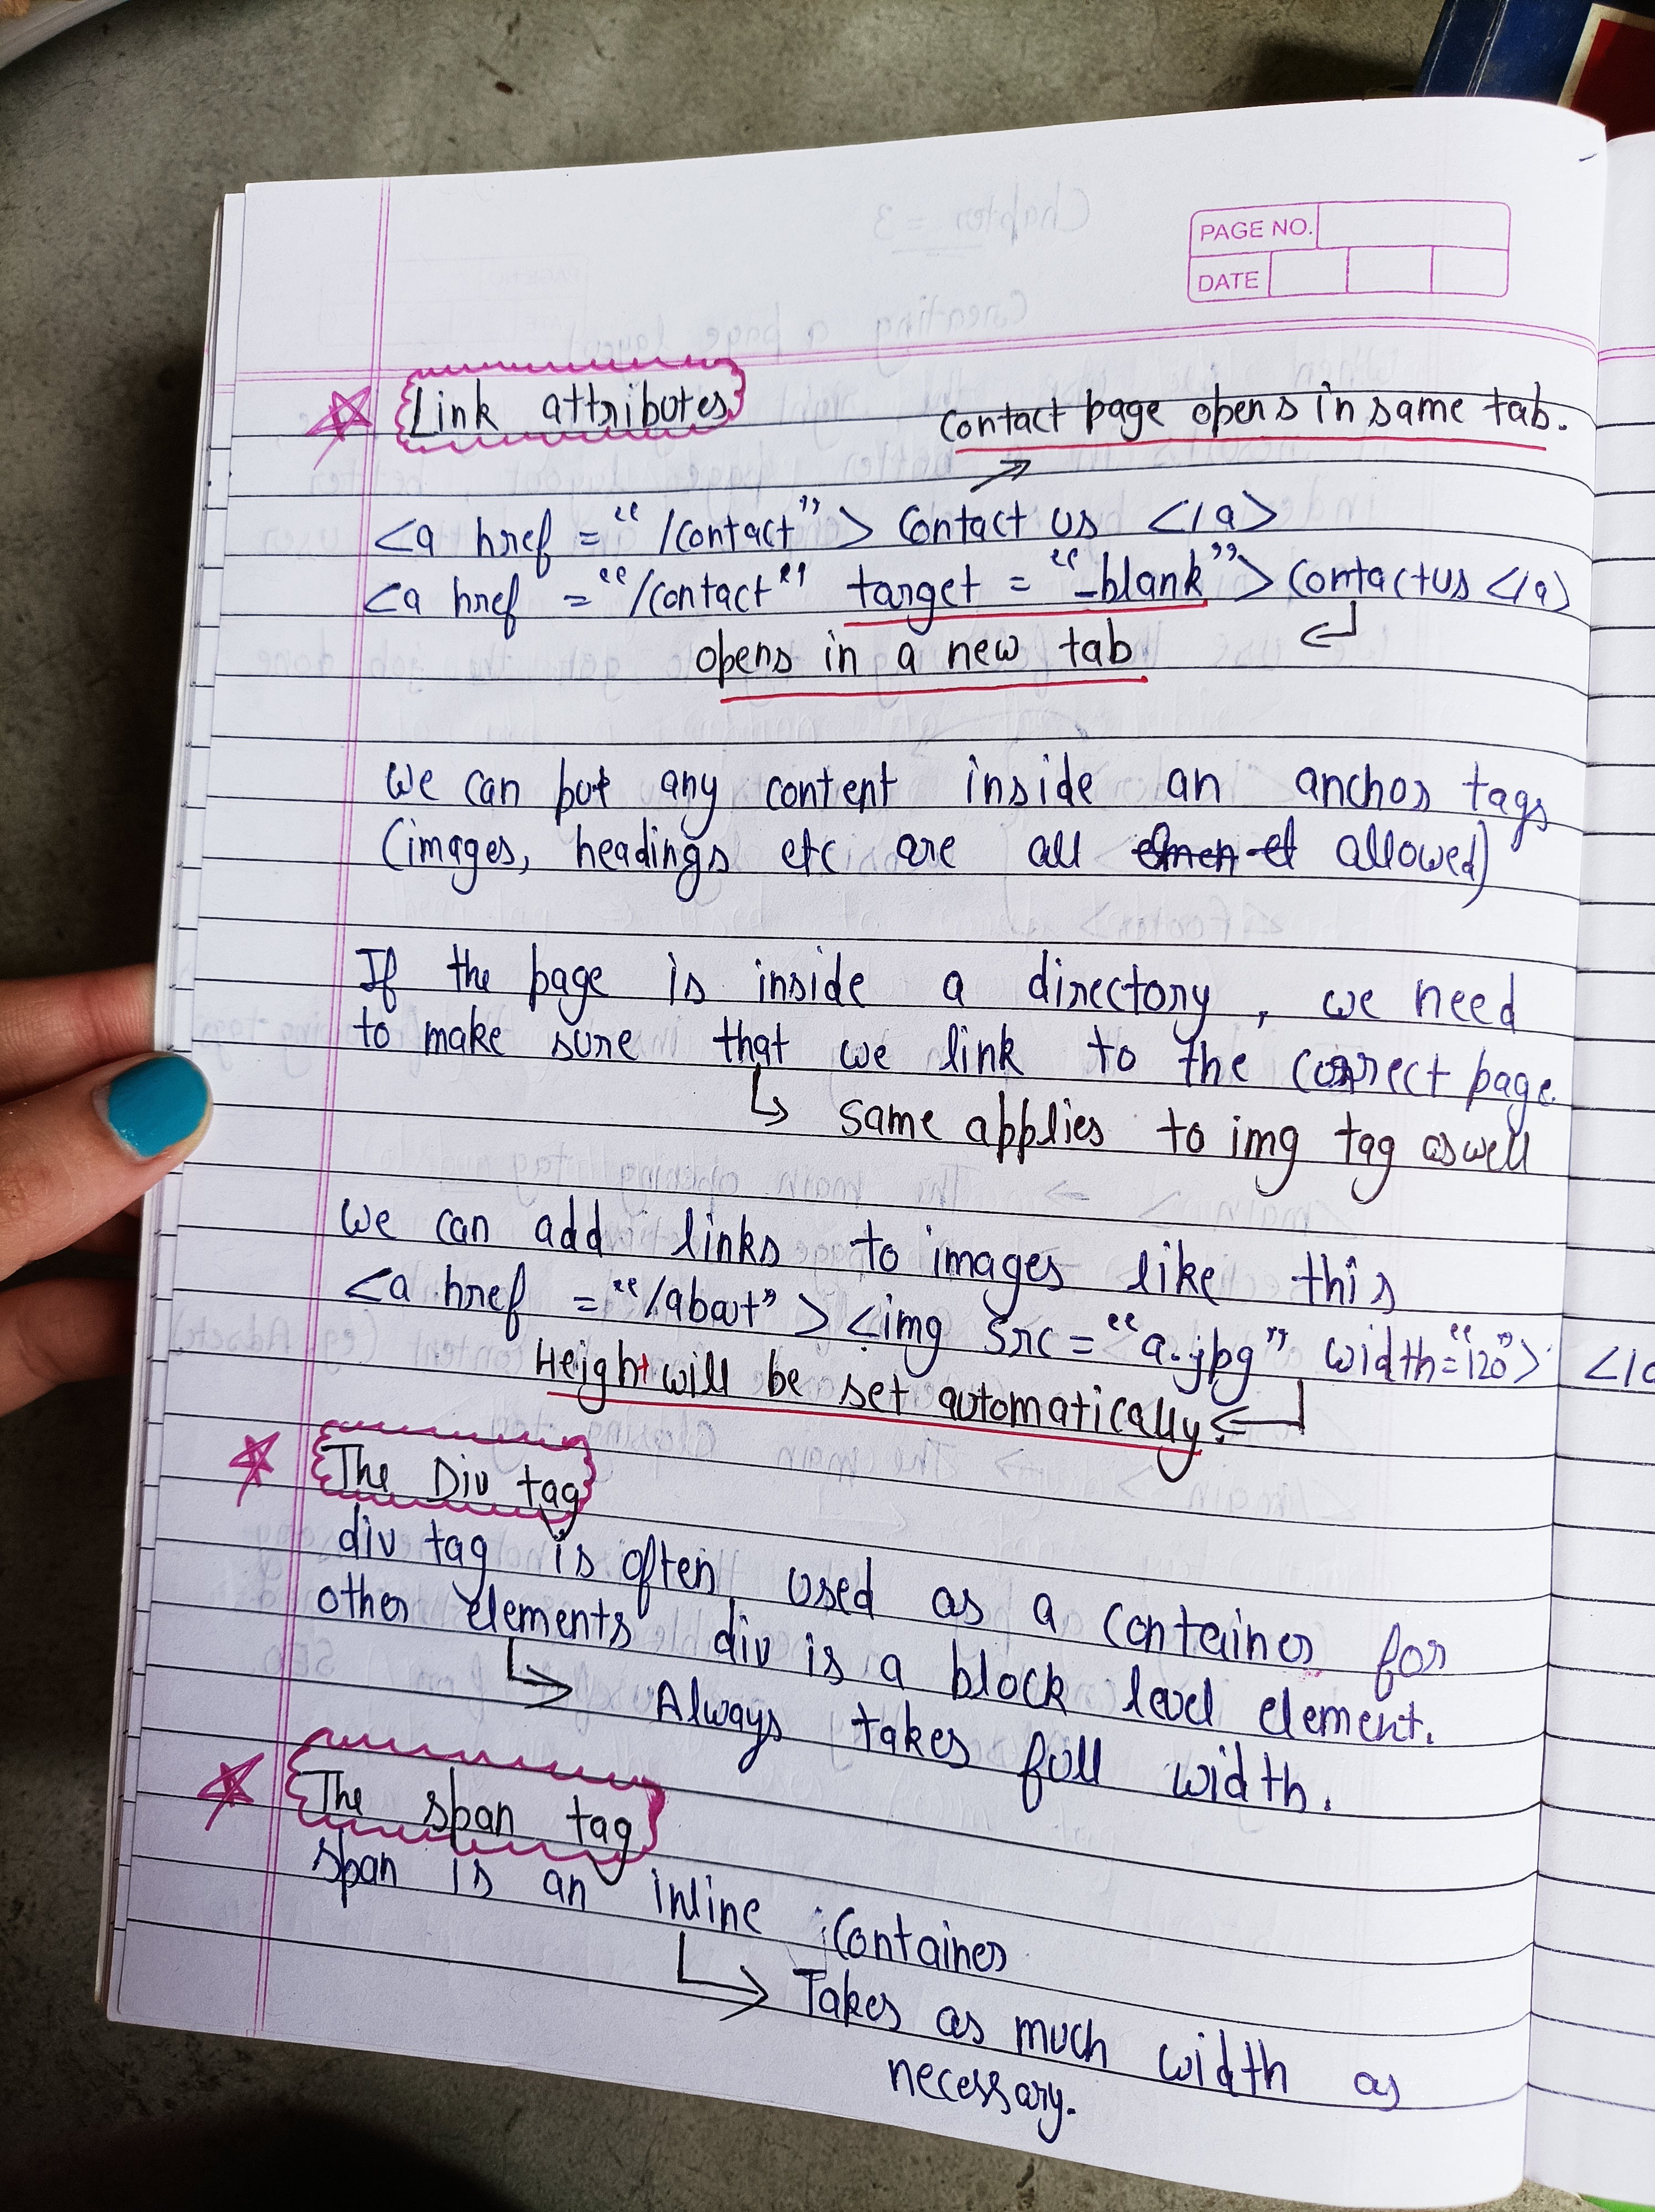 PAGE NO.
DATE
Link attributes
Contact page opens in same tab.
<a href = "/contact"> Contact us </a>
<a href = "/contact" target = "_blank"> Contact us </a>
opens in a new tab
We can put any content inside an anchor tags
(images, headings etc are all allowed)
If the page is inside a directory, we need
to make sure that we link to the correct page.
Same applies to img tag as well
We can add links to images like this
<a href = "/about"> <img src = "a.jpg" width = "120"> </a
Height will be set automatically.
The Div tag
div tag is often used as a container for
other elements div is a block level element.
Always takes full width.
The span tag
span is an inline container
Takes as much width as
necessary.